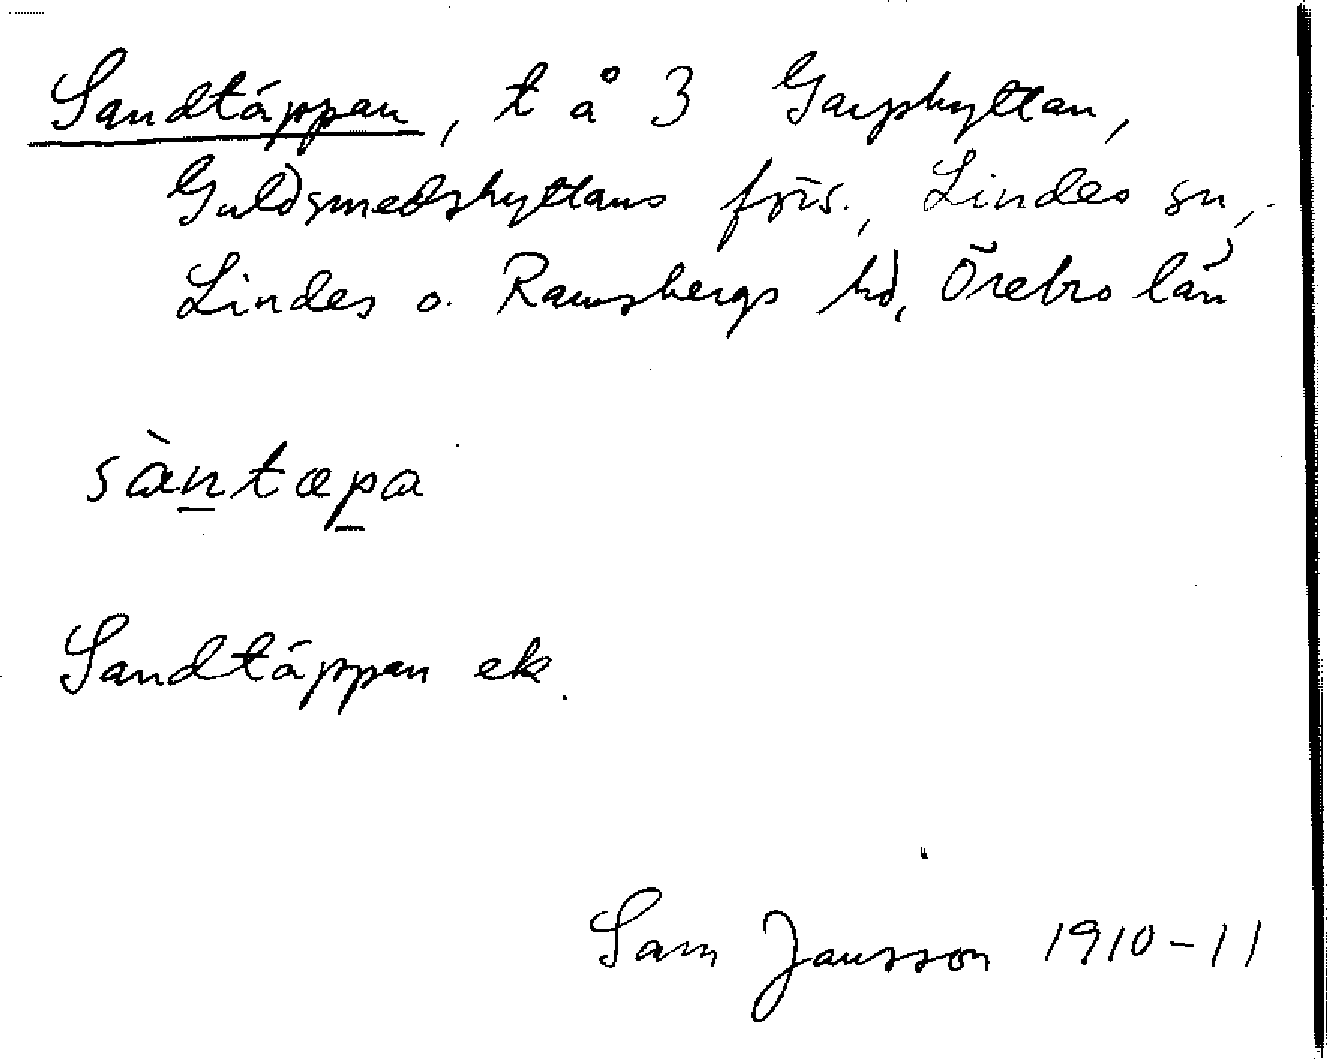 Sandtäppan, t å 3 Garphyttan,
Guldsmedshyttans förs., Lindes sn,
Lindes o. Ramsbergs hd, Örebro län
sàntæpa
Sandtäppan ek.
Sam Jansson 1910-11